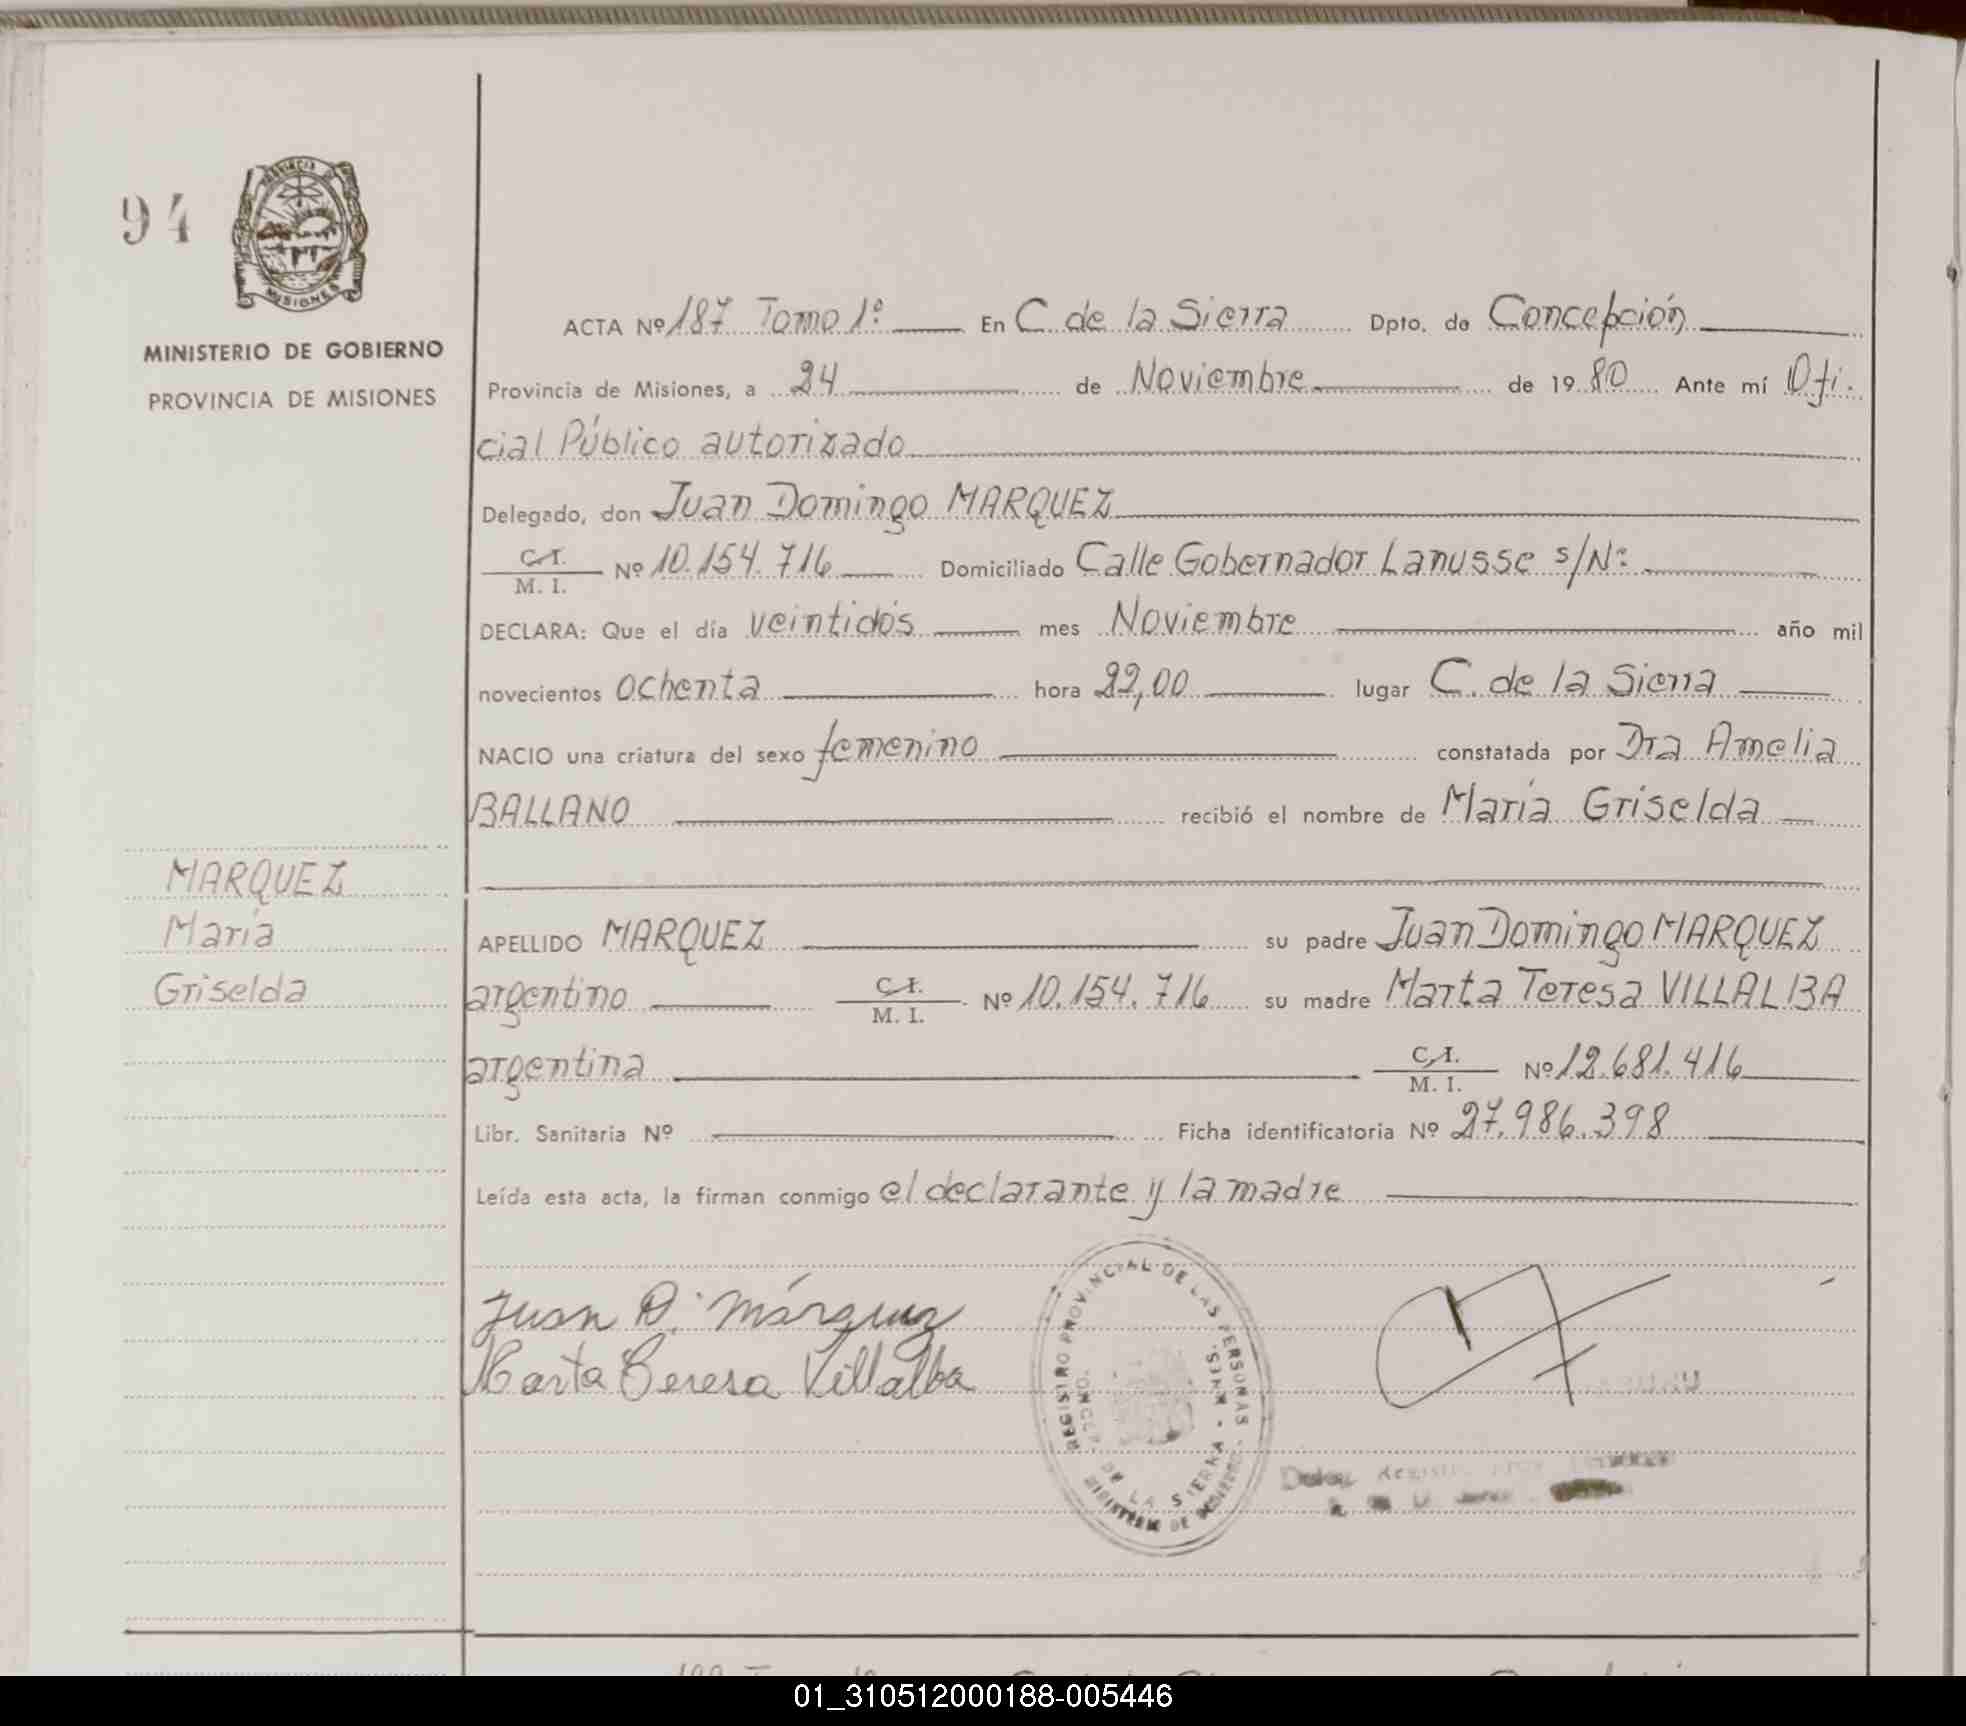 94
PROVINCIA DE
MISIONES
MINISTERIO DE GOBIERNO
PROVINCIA DE MISIONES
ACTA Nº 187 Tomo 1º En C. de la Sierra Dpto. de Concepción
Provincia de Misiones, a 24 de Noviembre de 1980 Ante mí Ofi-
cial Público autorizado
Delegado, don Juan Domingo MARQUEZ
C.I. / M. I. Nº 10.154.716 Domiciliado Calle Gobernador Lanusse s/Nº
DECLARA: Que el día veintidós mes Noviembre año mil
novecientos ochenta hora 22,00 lugar C. de la Sierra
NACIO una criatura del sexo femenino constatada por Dra Amelia
BALLANO recibió el nombre de María Griselda
MARQUEZ
María
Griselda
APELLIDO MARQUEZ su padre Juan Domingo MARQUEZ
argentino C.I. / M. I. Nº 10.154.716 su madre Marta Teresa VILLALBA
argentina C.I. / M. I. Nº 12.681.416
Libr. Sanitaria Nº Ficha identificatoria Nº 27.986.398
Leída esta acta, la firman conmigo el declarante y la madre
Juan D. Márquez
Marta Teresa Villalba
REGISTRO PROVINCIAL DE LAS PERSONAS
DE LA SIERRA - MNES.
MINISTERIO DE GOBIERNO
01_310512000188-005446